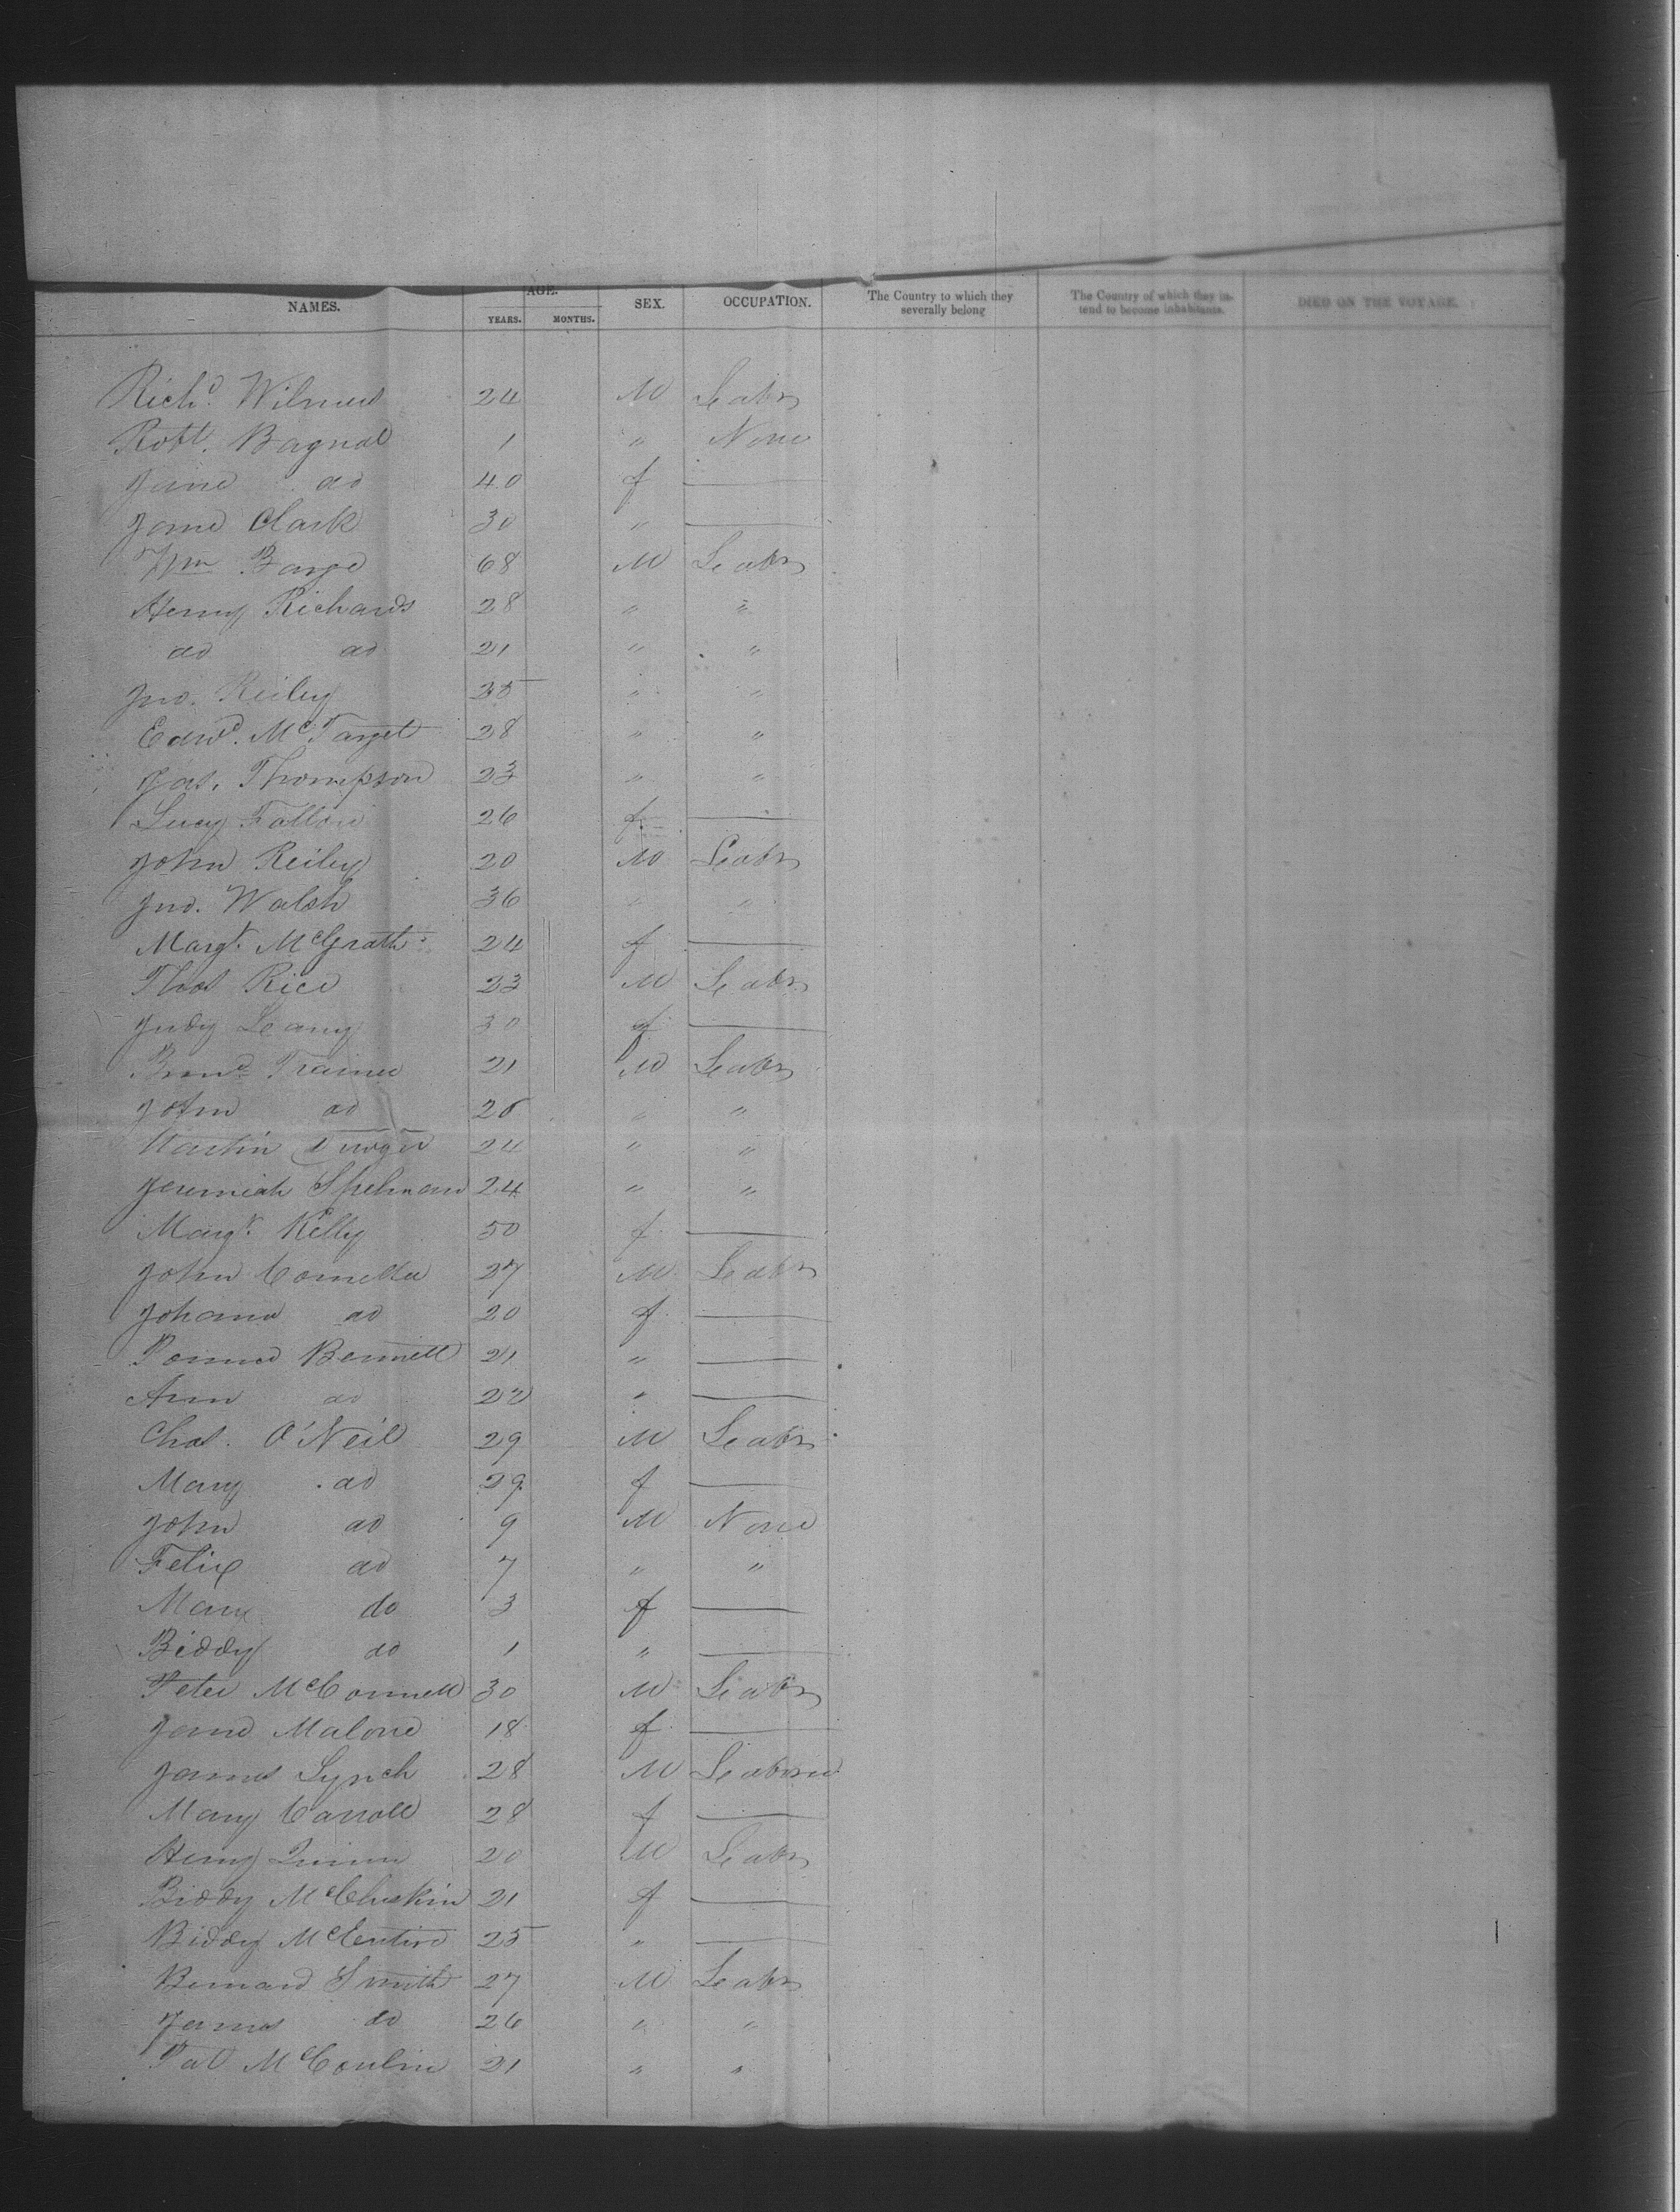 NAMES. AGE. YEARS. MONTHS. SEX. OCCUPATION. The Country to which they severally belong The Country of which they intend to become inhabitants. DIED ON THE VOYAGE.
Richd. 24 M Labr
Robt. Bagnal 1 " None
Jane do 40 f —
Jane Clark 30 " —
Wm Barge 68 M Labr
Henry Richards 28 " "
do do 21 " "
Jno. Reiley 35 " "
Edwd. McTarget 28 " "
Jas. Thompson 23 " "
Lucy Fallon 26 f —
John Reiley 20 M Labr
Jno. Walsh 36 " "
Margt. McGrath 24 f —
Thos Rice 23 M Labr
Judy Leamy 30 f —
Trainer 21 M Labr
John do " "
Martin 24 " "
Jeremiah Spelman 24 " "
Margt. Kelly 50 f —
John 27 M Labr
Johana do 20 f —
Bennett 21 " —
Ann do 22 " —
Chas. O'Neil 29 M Labr
Mary do 29 f —
John do 9 M None
Felix do 7 " "
Mary do 3 f —
Biddy do 1 " —
Peter McConnell 30 M Labr
Jane Malone 18 f —
James Lynch 28 M Laborer
Mary Carroll 28 f —
Henry Quinn 20 M Labr
Biddy McCluskin 21 f —
Biddy McEntire 25 " —
Bernard Smith 27 M Labr
James do 26 " "
Pat 21 " "